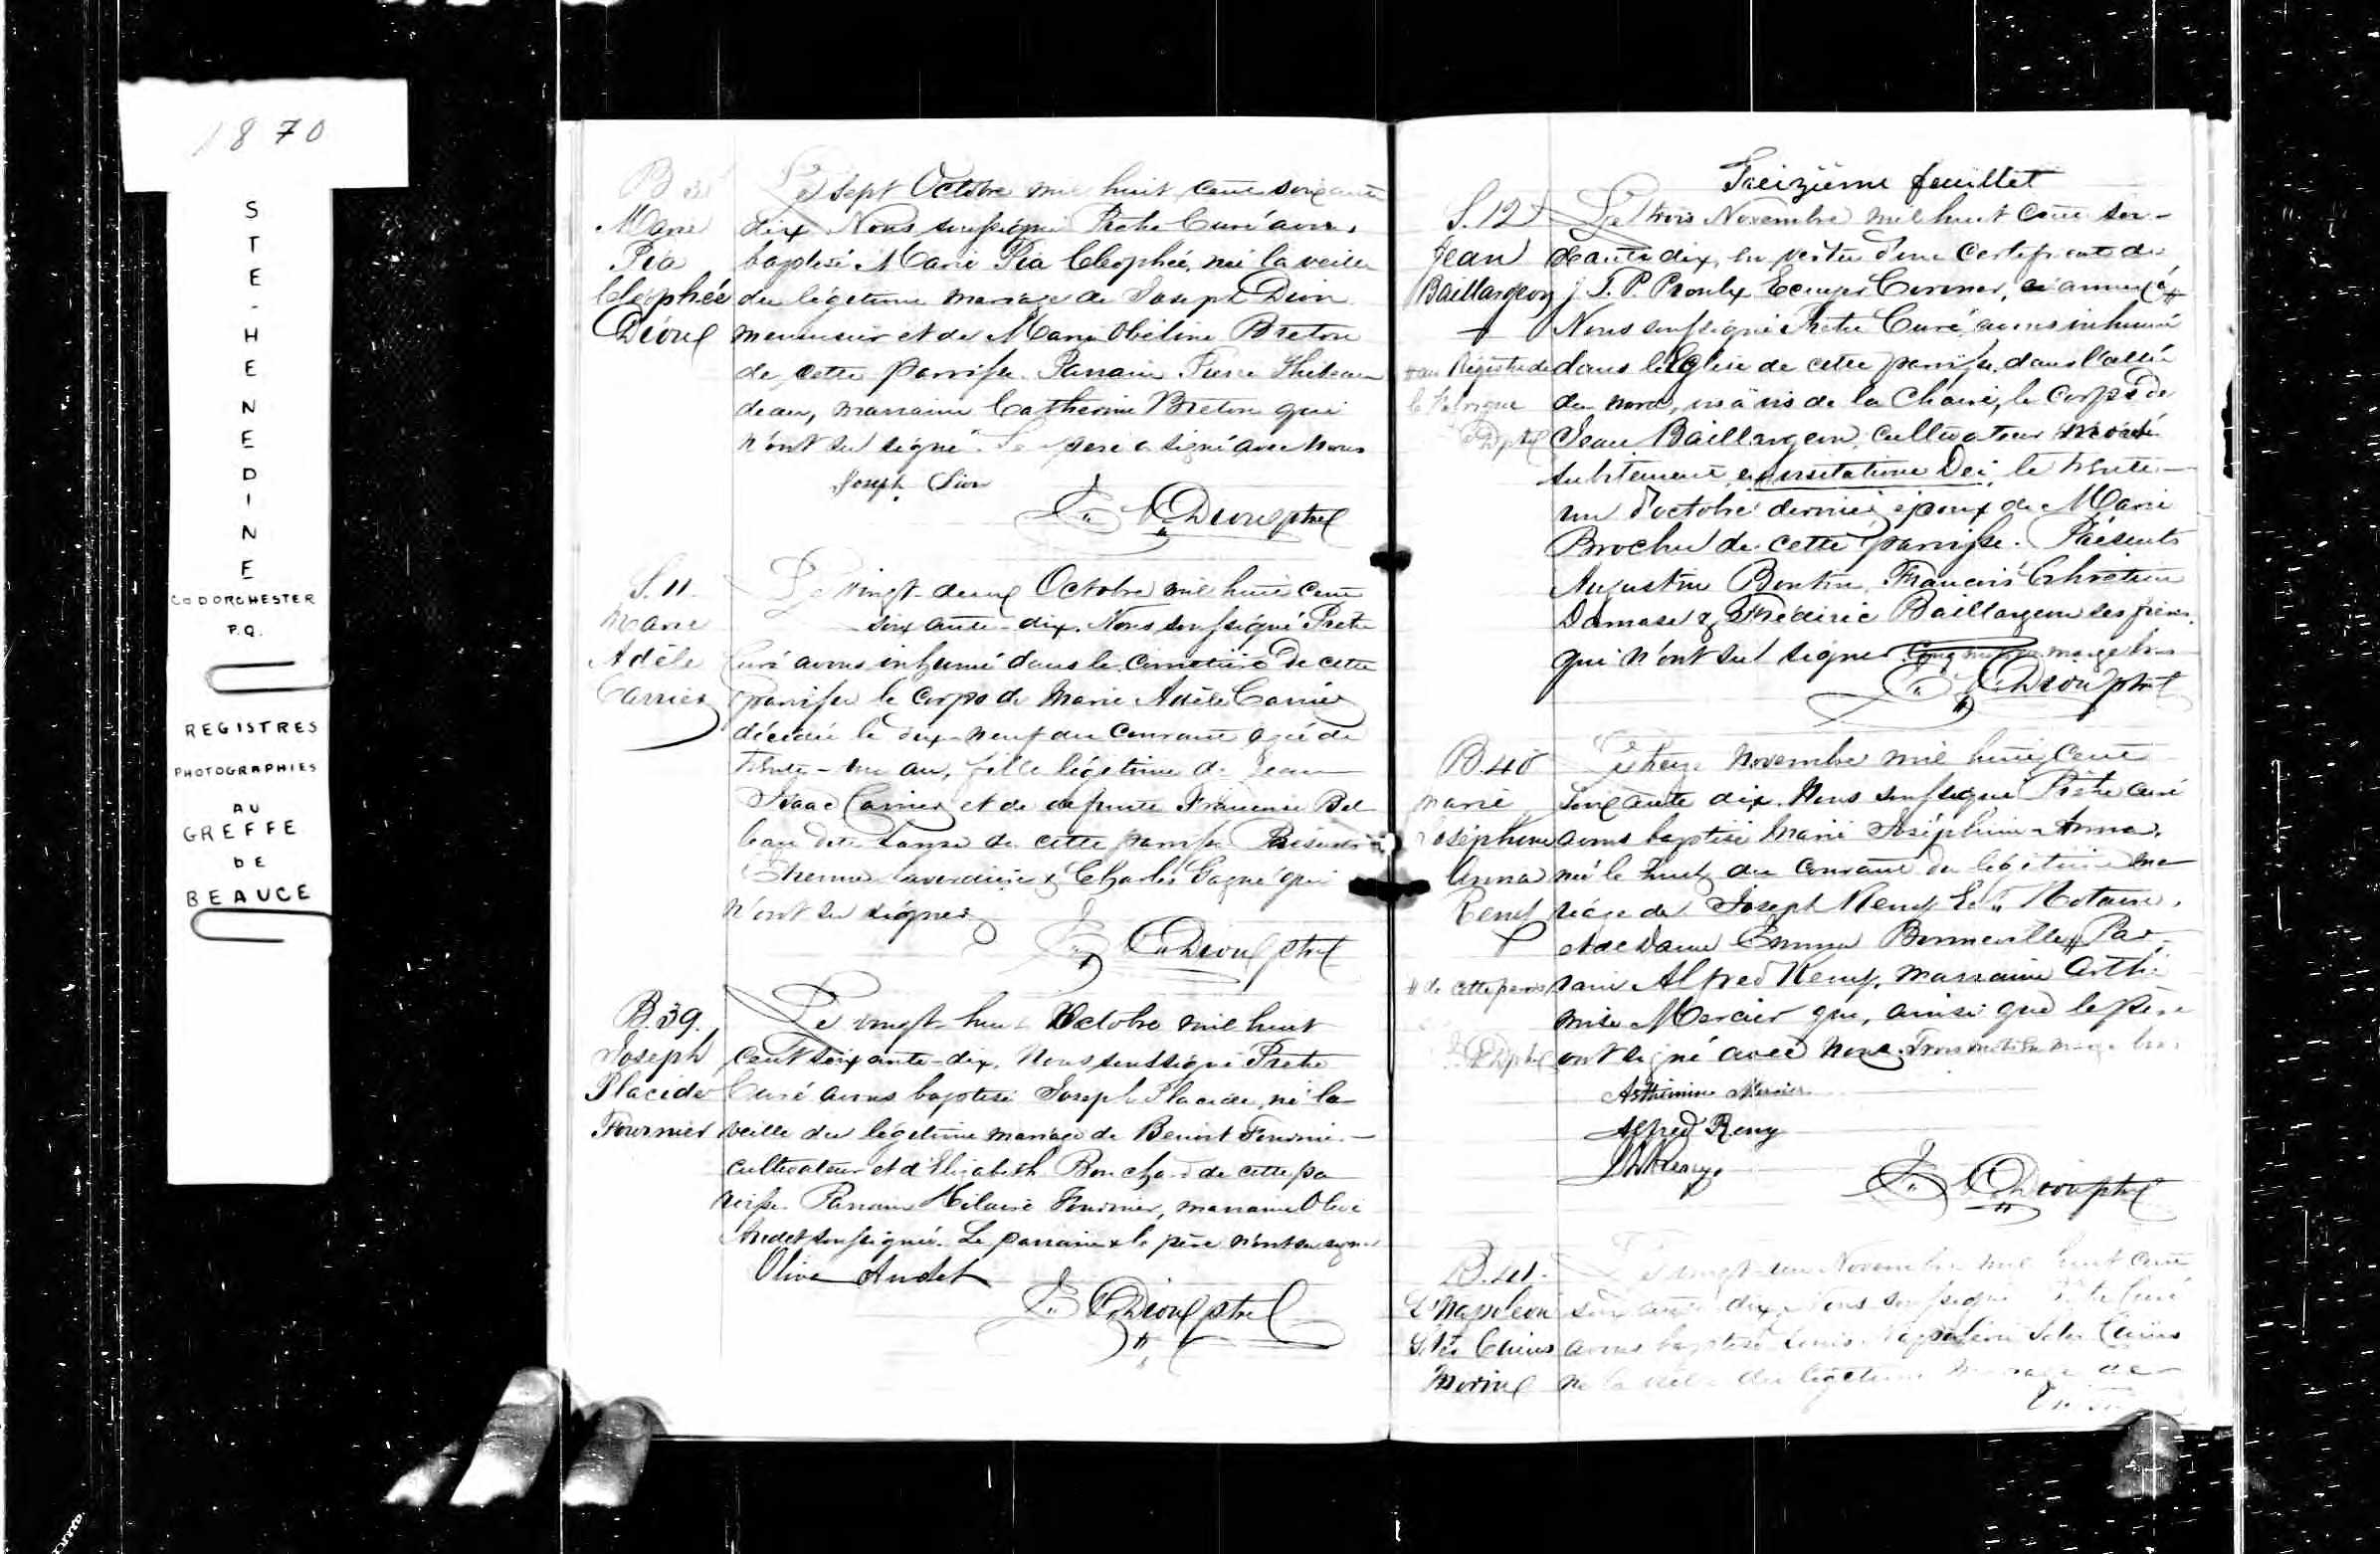 1870
STE-HENEDINE
CO DORCHESTER
P.Q.
REGISTRES
PHOTOGRAPHIES
AU
GREFFE
DE
BEAUCE
B
Marie
Pia
Cléophée
Dion
Le sept Octobre mil huit cent soixante
dix Nous soussigné Prêtre Curé avons
baptisé Marie Pia Cléophée, née la veille
du légitime mariage de Joseph Dion
menuisier et de Marie Obéline Breton
de cette paroisse. Parrain Pierre Thibau
deau, marraine Catherine Breton qui
n'ont su signé. Le père a signé avec nous
Joseph Dion
Dion ptre
S. 11
Marie
Adèle
Carrier
Le vingt-deux Octobre mil huit cent
soixante-dix. Nous soussigné Prêtre
Curé avons inhumé dans le cimetière de cette
paroisse le corps de Marie Adèle Carrier
décédée le dix-neuf du courant agée de
trente-un an, fille légitime de Jean
Isaac Carrier et de defunte Francoise Bel
leau dite de cette paroisse Présents
Etienne Laverdière & Charles Gagné qui
n'ont su signer
Dion ptre
B. 39.
Joseph
Placide
Fournier
Le vingt-huit Octobre mil huit
cent soixante-dix, Nous soussigné Prêtre
Curé avons baptisé Joseph Placide, né la
veille du légitime mariage de Benoit Fournier
cultivateur et d'Elisabeth Bouchard de cette pa
roisse Parrain Hilaire Fournier, marraine Olive
Audet soussignée. Le parrain & le père n'ont su signer
Olive Audet
Dion ptre
Treizième feuillet
S. 12
Jean
Baillargeon
+ au Régistre de
la fabrique
D ptre
Le trois Novembre mil huit cent soi-
xante dix, en vertu d'un Certificat de
J. T. P. Proulx Ecuyer Coroner, annexé #
Nous soussigné Prêtre Curé avons inhumé
dans l'Eglise de cette paroisse, dans l'allée
du nord, vis à vis de la Chaire, le corps de
Jean Baillargeon, cultivateur décédé
subitement, ex visitatione Dei, le trente-
un d'octobre dernier, époux de Marie
Brochu de cette paroisse. Présents
Augustin Boutin, François Chrétien
Damase & Frédéric Baillargeon ses frères
qui n'ont su signer marge bons
Dion ptre
B. 40
Marie
Joséphine
Anna
Remy
# de cette parois
D ptre
Le treize Novembre mil huit cent
soixante dix. Nous soussigné Prêtre curé
avons baptisé Marie Joséphine Anna,
née le huit du courant du légitime ma
riage de Joseph Remy Notaire,
et de Dame Emma Bonneville # Par
rain Alfred Remy, marraine Arthé
mise Mercier qui, ainsi que le père
ont signé avec nous. Trois mots en marge bons
Arthémise Mercier
Alfred Remy
Remy
Dion ptre
B. 41.
Ls Napoleon
Morin
Le vingt-un Novembre mil huit cent
soixante dix, Nous soussigné Prêtre Curé
avons baptisé Louis Napoléon
né la veille du légitime mariage de